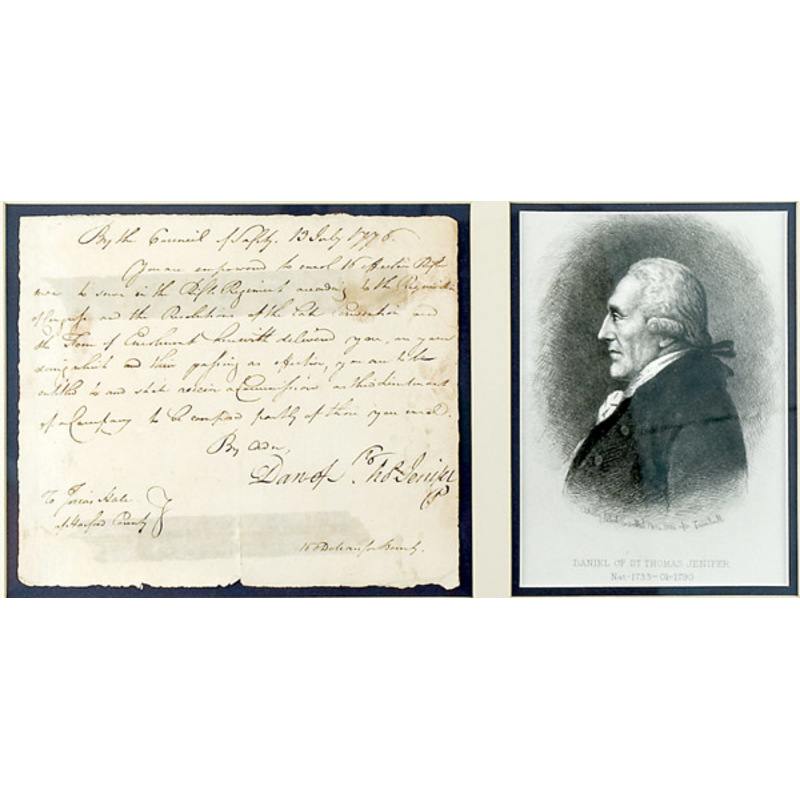 By the Council of Safety. 13 July 1776.
You are empowered to enrol 16 effective Rifle
men to serve in the Rifle Regiment according to the Regulation
of Congress and the Resolutions of the late Convention and
the Form of Enrolment herewith delivered you, on your
doing which and their passing as effective, you are to be
entitled to and shall receive a Commission as third Lieutenant
of a Company to be composed partly of those you enrol.
By Order,
Dan of St Thos Jenifer
To Josias Hale
of Harford County
Bounty.
DANIEL OF ST THOMAS JENIFER
Nat-1733-Ob-1790